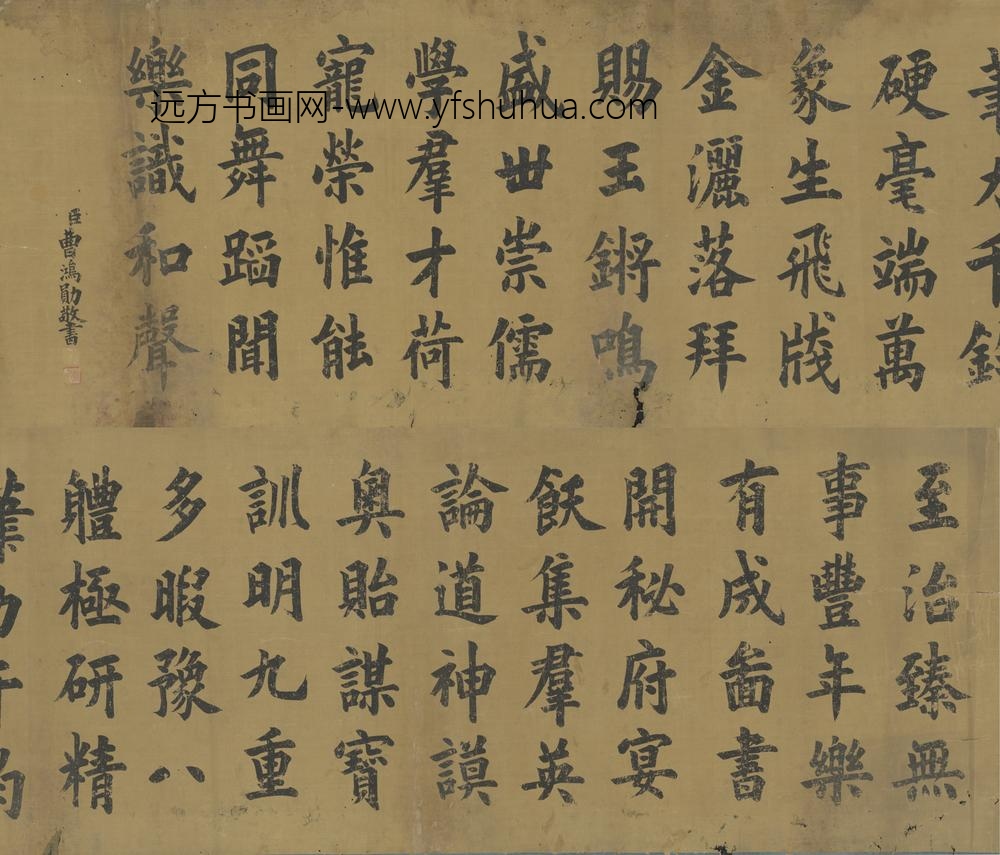 至治臻無
事豐年樂
有成啚書
開秘府宴
飫集羣英
論道神謨
奧貽謀寶
訓明九重
多暇豫八
軆極研精
硬毫端萬
象生飛牋
金灑落拜
賜玉鏘鳴
盛世崇儒
學羣才荷
寵榮惟能
同舞蹈聞
樂識和聲
臣曹鴻勛敬書
远方书画网-www.yfshuhua.com